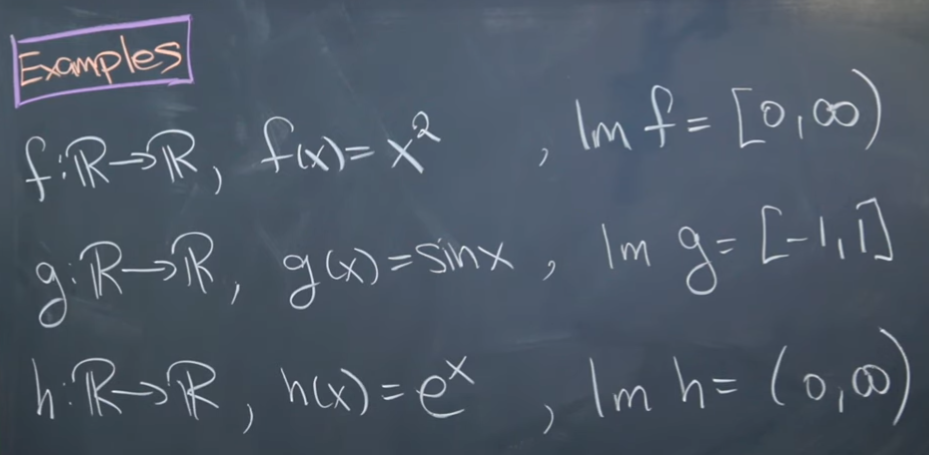 Examples
f:ℝ→ℝ, f(x)=x², Im f=[0,∞)
g:ℝ→ℝ, g(x)=sinx, Im g=[-1,1]
h:ℝ→ℝ, h(x)=eˣ, Im h=(0,∞)